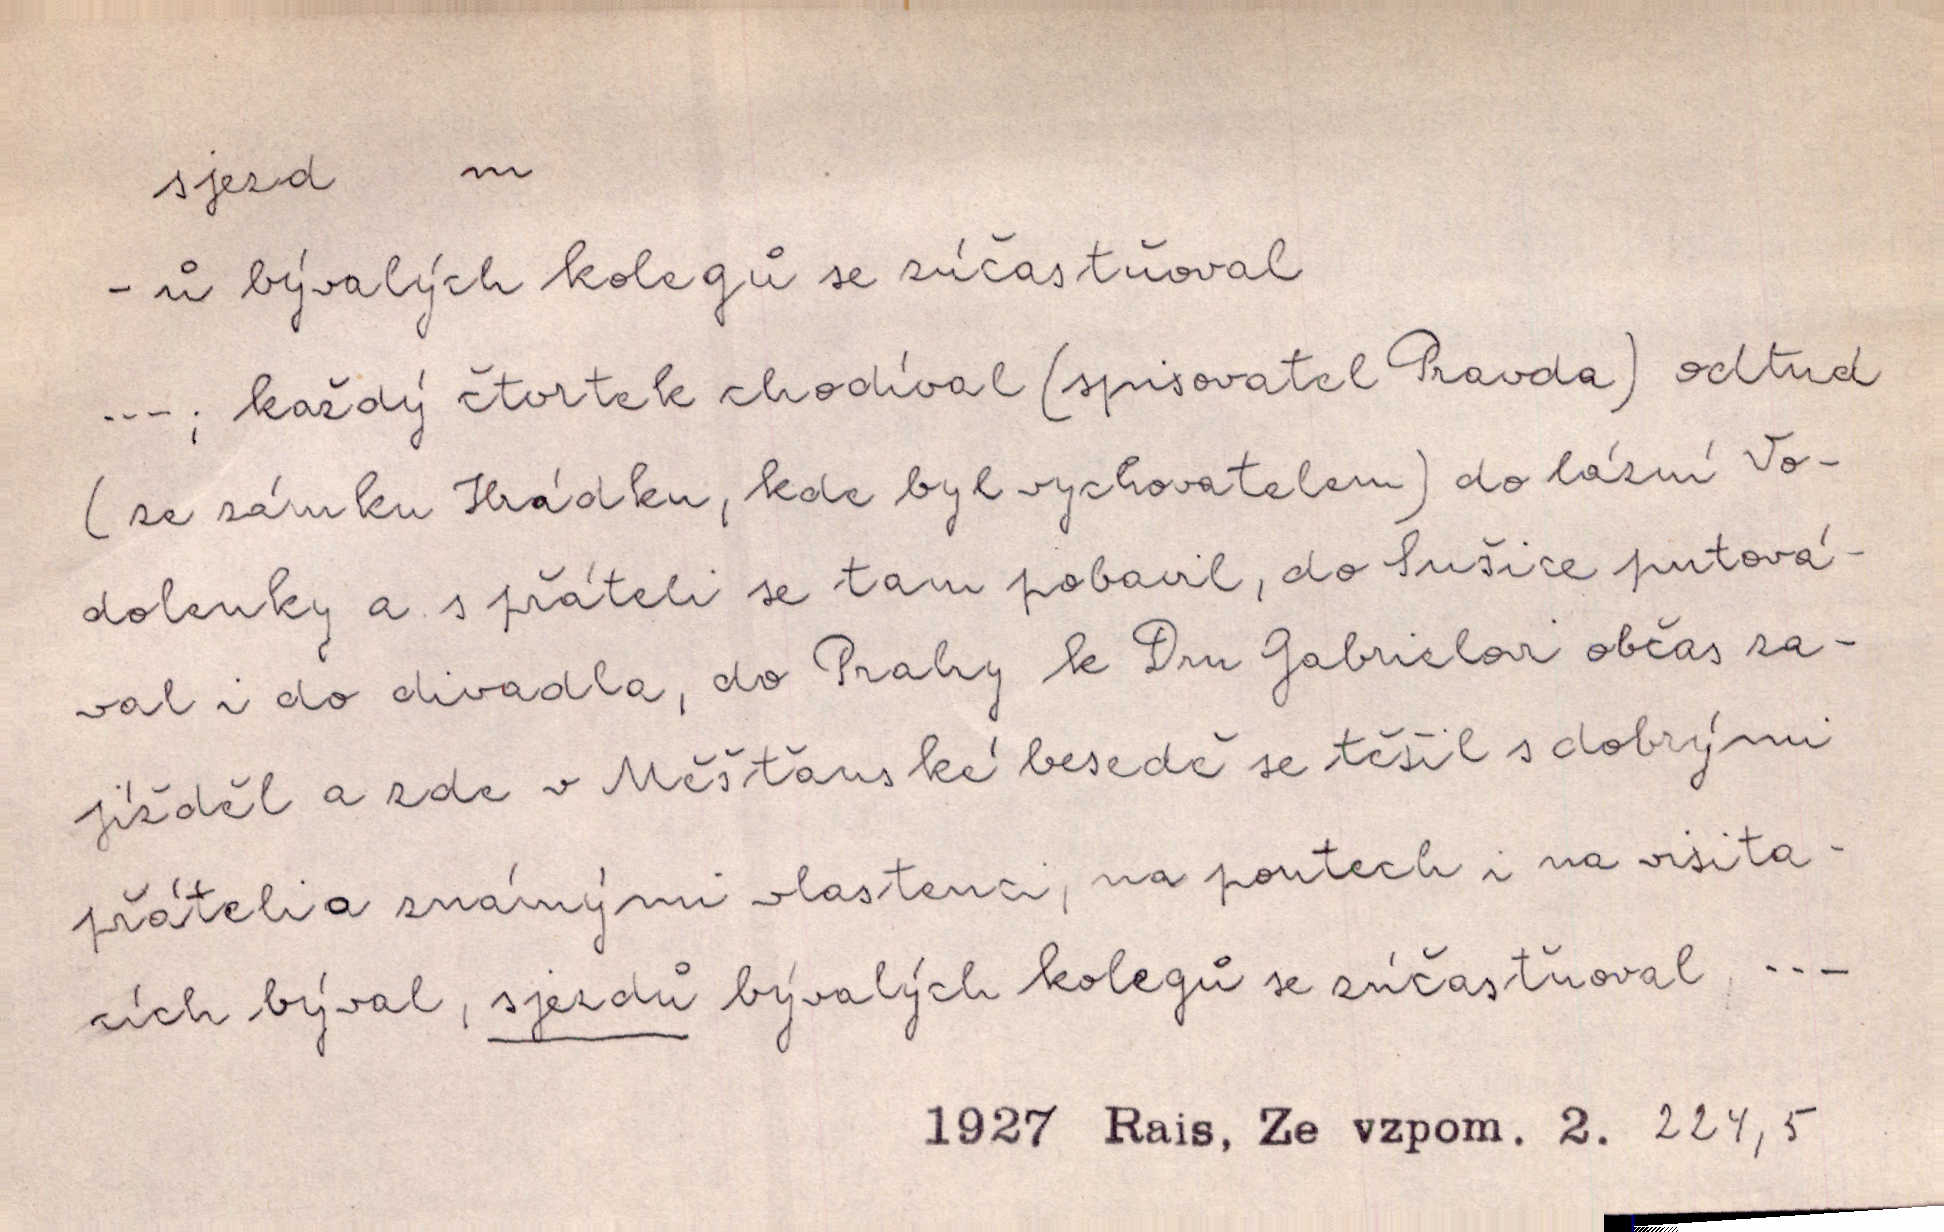 sjezd m
-ů bývalých kolegů se zúčastňoval
---; každý čtvrtek chodíval (spisovatel Pravda) odtud
(ze zámku Hrádku, kde byl vychovatelem) do lázní Vo-
dolenky a s přáteli se tam pobavil, do Sušice putová-
val i do divadla, do Prahy k Dru Gabrielovi občas za-
jížděl a zde v Měšťanské besedě se těšil s dobrými
přáteli a známými vlastenci, na poutech i na visita-
cích býval, sjezdů bývalých kolegů se zúčastňoval, ---
1927 Rais, Ze vzpom. 2. 224,5